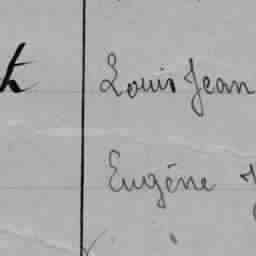 Louis Jean
Eugène